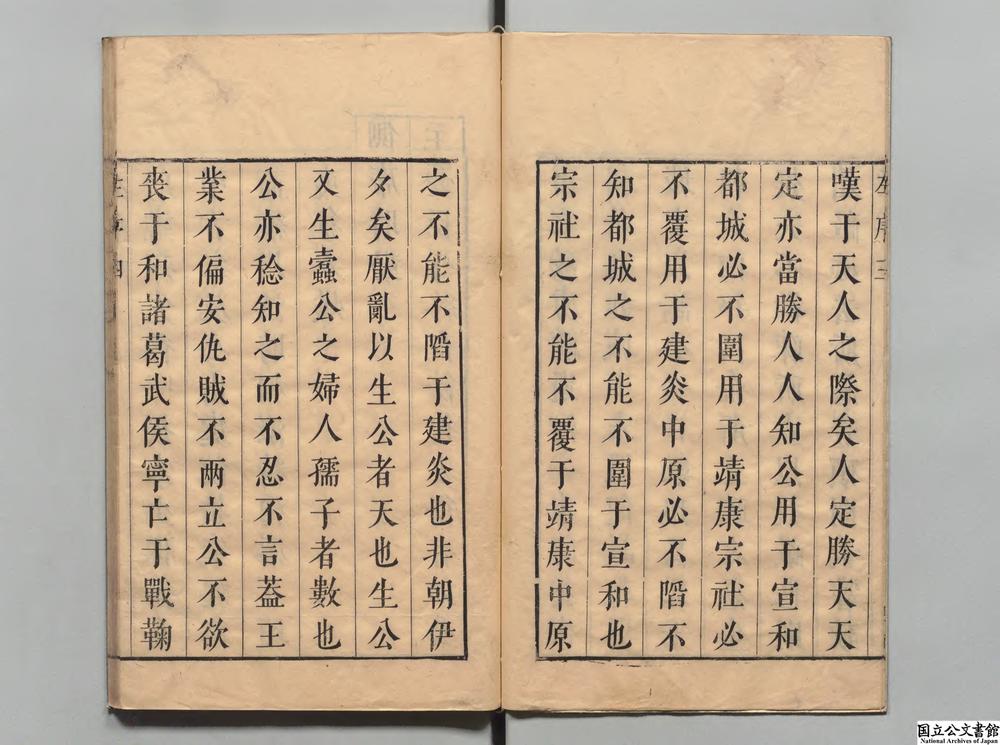 嘆于天人之際矣人定勝天天
定亦當勝人人知公用于宣和
都城必不圍用于靖康宗社必
不覆用于建炎中原必不䧟不
知都城之不能不圍于宣和也
宗社之不能不覆于靖康中原
之不能不䧟于建炎也非朝伊
夕矣厭亂以生公者天也生公
又生蠹公之婦人孺子者數也
公亦稔知之而不忍不言葢王
業不偏安仇賊不兩立公不欲
喪于和諸葛武侯寧亡于戰鞠
序三
序四
国立公文書館
National Archives of Japan